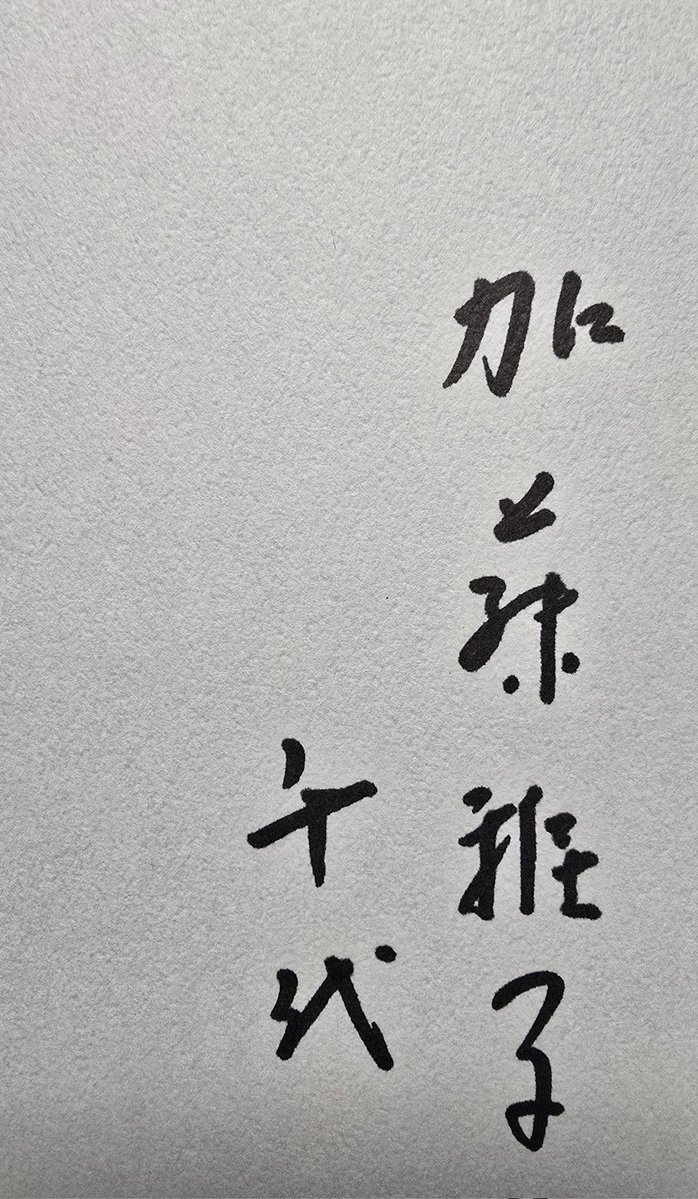 加藤雅子
千代